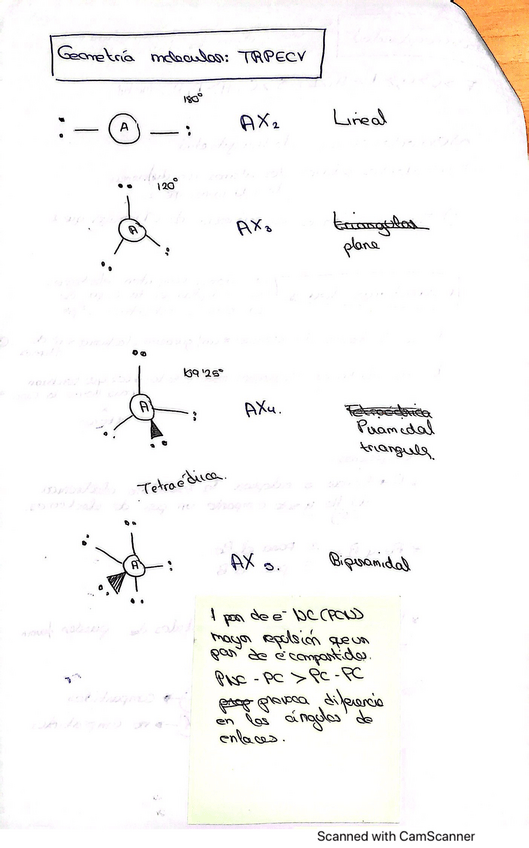 Geometría molecular: TRPECV
180°
: — A — : AX₂ Lineal
120°
A AX₃ triangular
plana
109'25°
A AX₄. Tetraédrica
Piramidal
triangula.
Tetraédrica.
A AX₅. Bipiramidal
1 par de e⁻ NC (PCNS)
mayor repulsión que un
par de e⁻ compartidos.
PNC - PC > PC - PC
prop provoca diferencia
en los ángulos de
enlaces.
Scanned with CamScanner